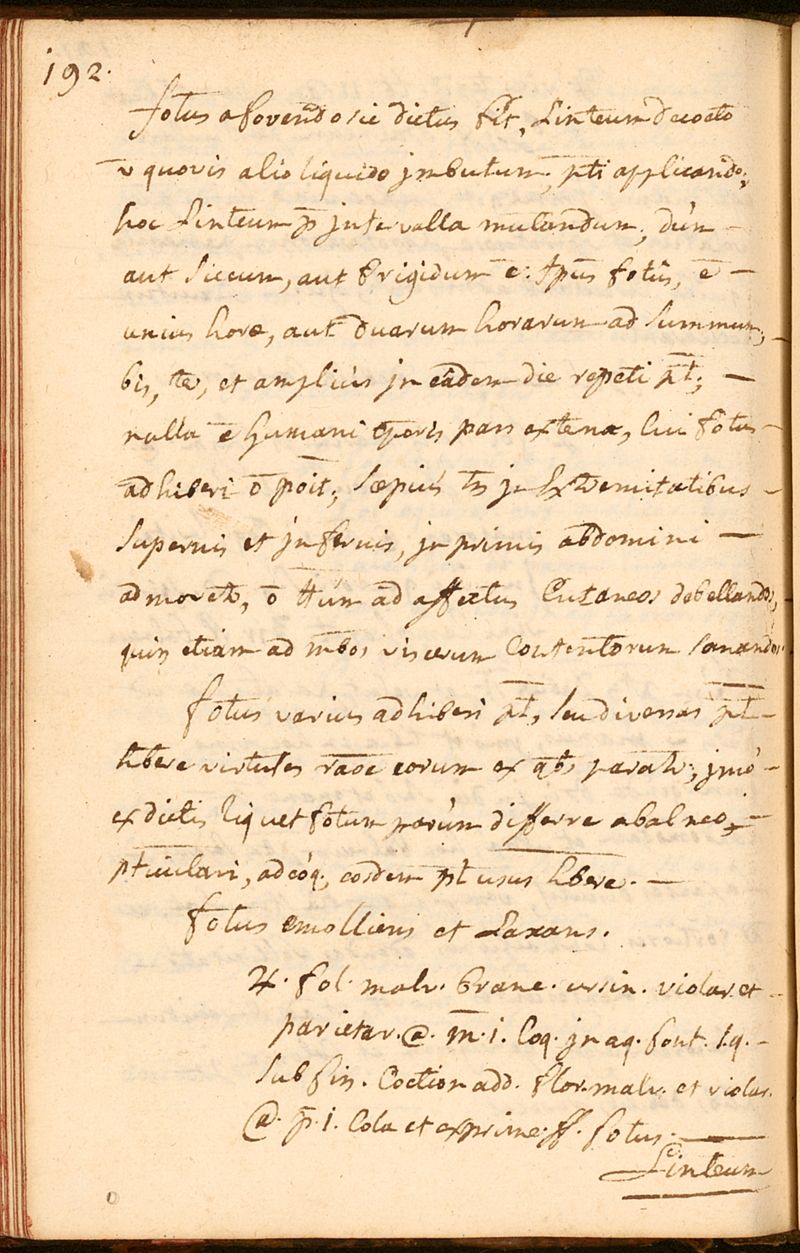 192.
fotus a fovendo sic dictus fit, Linteum decocto
v̄ quovis alio liquido jmbutum, pti applicando;
hoc linteum p̄ jntervalla mutandum, dum
aut Siccum, aut frigidum ē: fotûs, ē
unius horæ, aut duarum horarum ad summum,
bis, te, et ampliùs jn eâdem die repeti pt̄;
nulla ē humani cporis pars externa, cui fotus
adhiberi ō poīt; sæpiùs tn̄ jn Extremitatibus
supernis et jnfernis, jn primis abdomini
admovetr, ō tt̄um ad affectus Cutaneos debellandos,
quin etiam ad mbos viscerum Contentorum sanandos
fotus varius adhiberi pt̄, seu diversas pt̄
hbere virtutes raōe eorum ex qbs paratr; jmò
ex dictis liquet fotum parùm differre a balneo
pticulari, adeóq, eosdem pt̄ usus hbere. —
fotus emolliens et Laxans.
♃. fol. malv. branc. ursin. violar. et
parietar. @. m̄. i. Coq. jn aq. font. s.q.
sub fin. Coction add. flor. malv. et violar.
@. p̄. i. Cola et exprime. ff. fotus.
Linteum